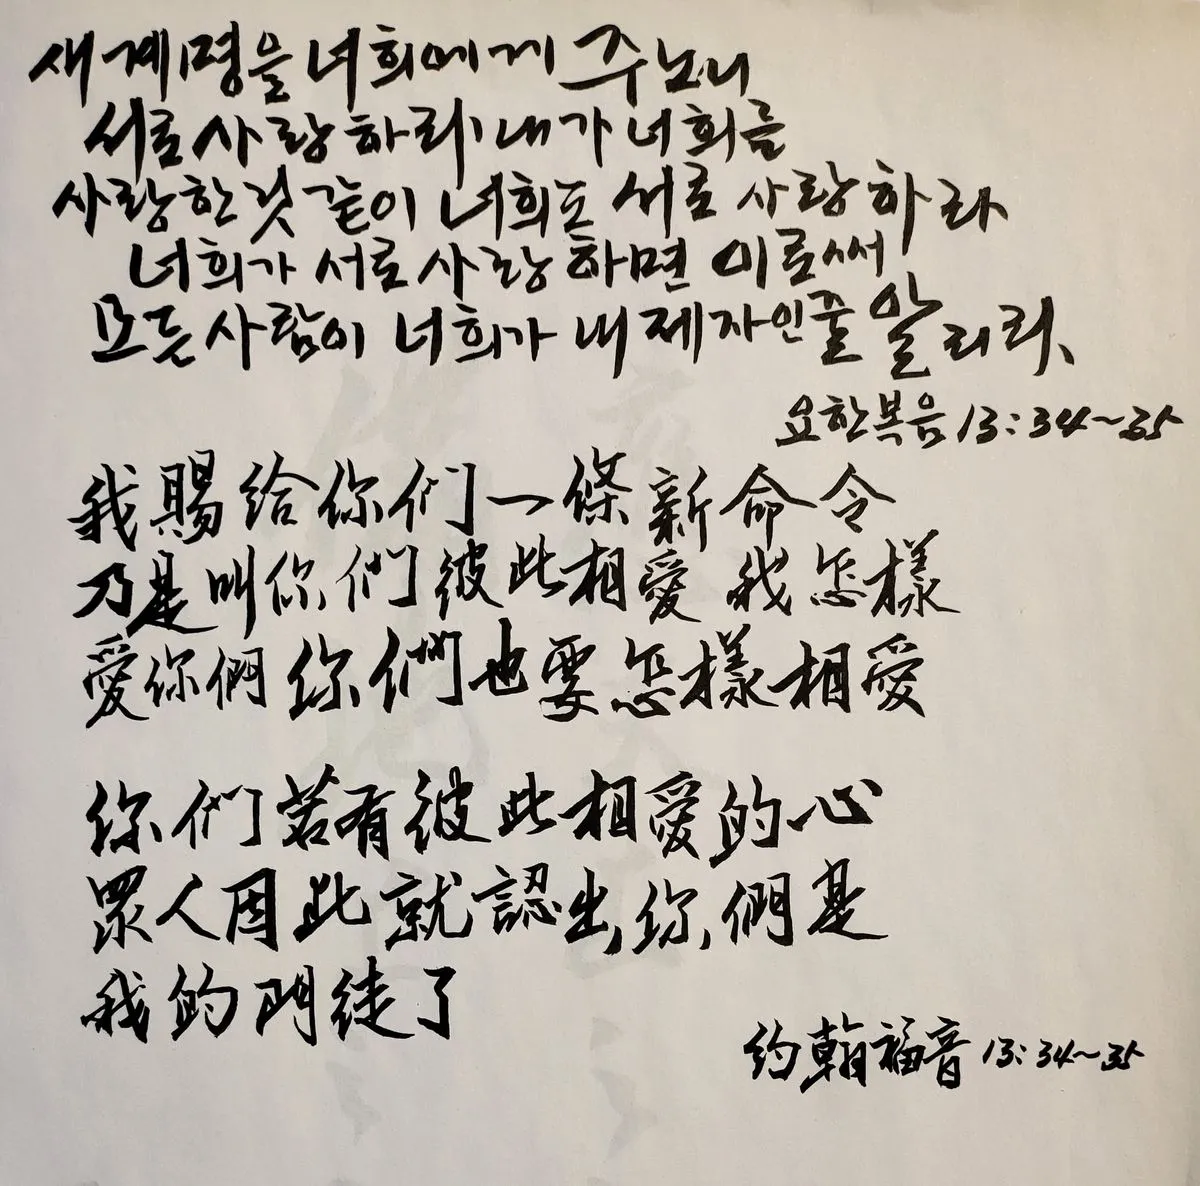 새계명을 너희에게 주노니
서로 사랑하라 내가 너희를
사랑한것 같이 너희도 서로 사랑하라
너희가 서로 사랑하면 이로써
모든 사람이 너희가 내 제자인줄 알리라
요한복음 13:34~35
我賜給你們一條新命令
乃是叫你們彼此相愛 我怎樣
愛你們 你們也要怎樣相愛
你們若有彼此相愛的心
眾人因此就認出你們是
我的門徒了
約翰福音 13:34~35